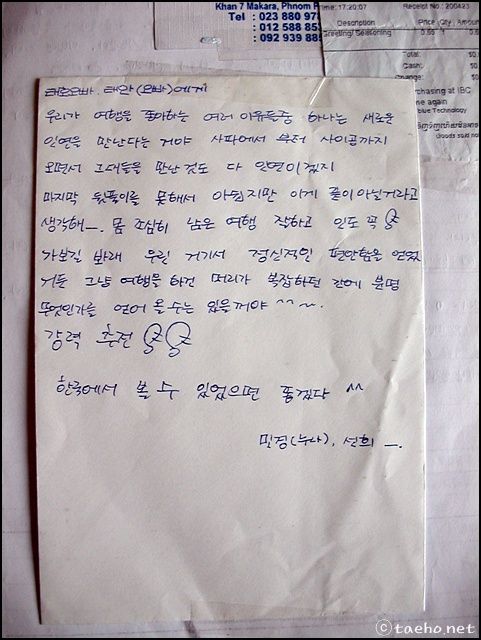 Khan 7 Makara, Phnom P
Tel : 023 880 97
: 012 588 85
: 092 939 88
ime: 17:20:07 Receipt No : 200423
Description Price Qty Amoun
Greeting/ Seasoning 0.50 1
Total: $0
Cash: $0
hange: $
rchasing at IBC
me again
blue Technology
Goods sold no
태호오빠, 태안(오빠)에게
우리가 여행을 좋아하는 여러 이유들중 하나는 새로운
인연을 만난다는거야 사파에서 부터 사이공까지
오면서 그대들을 만난것도 다 인연이겠지
마지막 뒷풀이를 못해서 아쉽지만 이게 끝이아닐거라고
생각해ㅡ. 몸 조심히 남은 여행 잘하고 인도 꼭
가보길 바래 우린 거기서 정신적인 편안함을 얻었
거든 그냥 여행을 하건 머리가 복잡하던 간에 분명
무엇인가를 얻어 올 수는 있을꺼야 ^^~.
강력 추천
한국에서 볼 수 있었으면 좋겠다 ^^
민경(누나), 선희 ㅡ.
ⓒtaeho.net